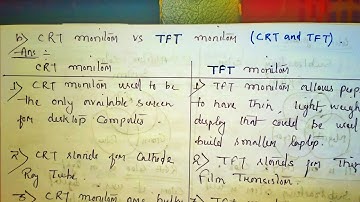 b) CRT monitor vs TFT monitor (CRT and TFT).
Ans :-
CRT monitor
TFT monitor
1) CRT monitor used to be
the only available screen
for desktop computer.
1) TFT monitor allows
to have thin, light weight
display that could be used
build smaller laptop.
2) CRT stands for Cathode
Ray Tube.
2) TFT stands for
Film Transistor.
3) CRT monitor are bulky
3) TFT monitor